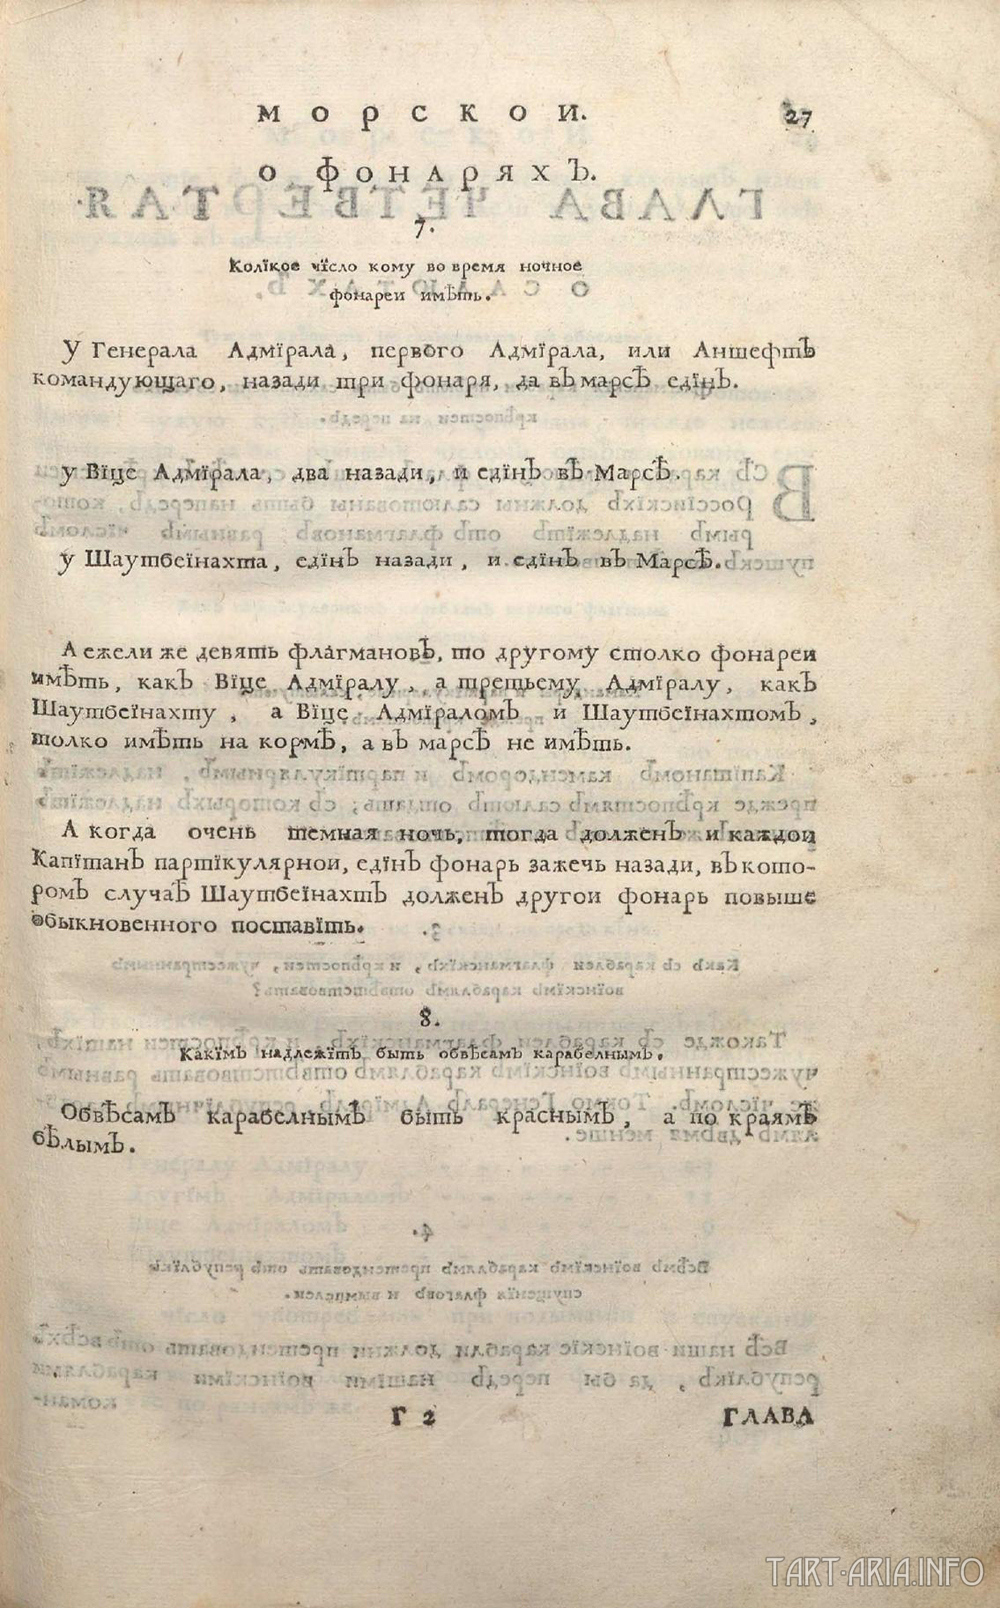 МОРСКОИ. 27
О ФОНАРЯХЪ.
7.
Колїкое чїсло кому во время ночное
фонареи имѣть.
У Генерала Адмїрала, первого Адмїрала, или Аншефтъ
командующаго, назади три фонаря, да въ марсѣ едїнъ.
у Вїце Адмїрала, два назади, и едїнъ въ Марсѣ.
у Шаутбеїнахта, едїнъ назади, и едїнъ въ Марсѣ.
А ежели же девять флагмановъ, то другому столко фонареи
имѣть, какъ Вїце Адмїралу, а третьему Адмїралу, какъ
Шаутбеїнахту, а Вїце Адмїраломъ и Шаутбеїнахтомъ,
толко имѣть на кормѣ, а въ марсѣ не имѣть.
А когда очень темная ночь, тогда долженъ и каждои
Капїтанъ партїкулярнои, едїнъ фонарь зажечь назади, въ кото-
ромъ случаѣ Шаутбеїнахтъ долженъ другои фонарь повыше
обыкновенного поставїть.
8.
Какїмъ надлежїтъ быть обвѣсамъ карабелнымъ.
Обвѣсамъ карабелнымъ быть краснымъ, а по краямъ
бѣлымъ.
Г 2 ГЛАВА
TART-ARIA.INFO